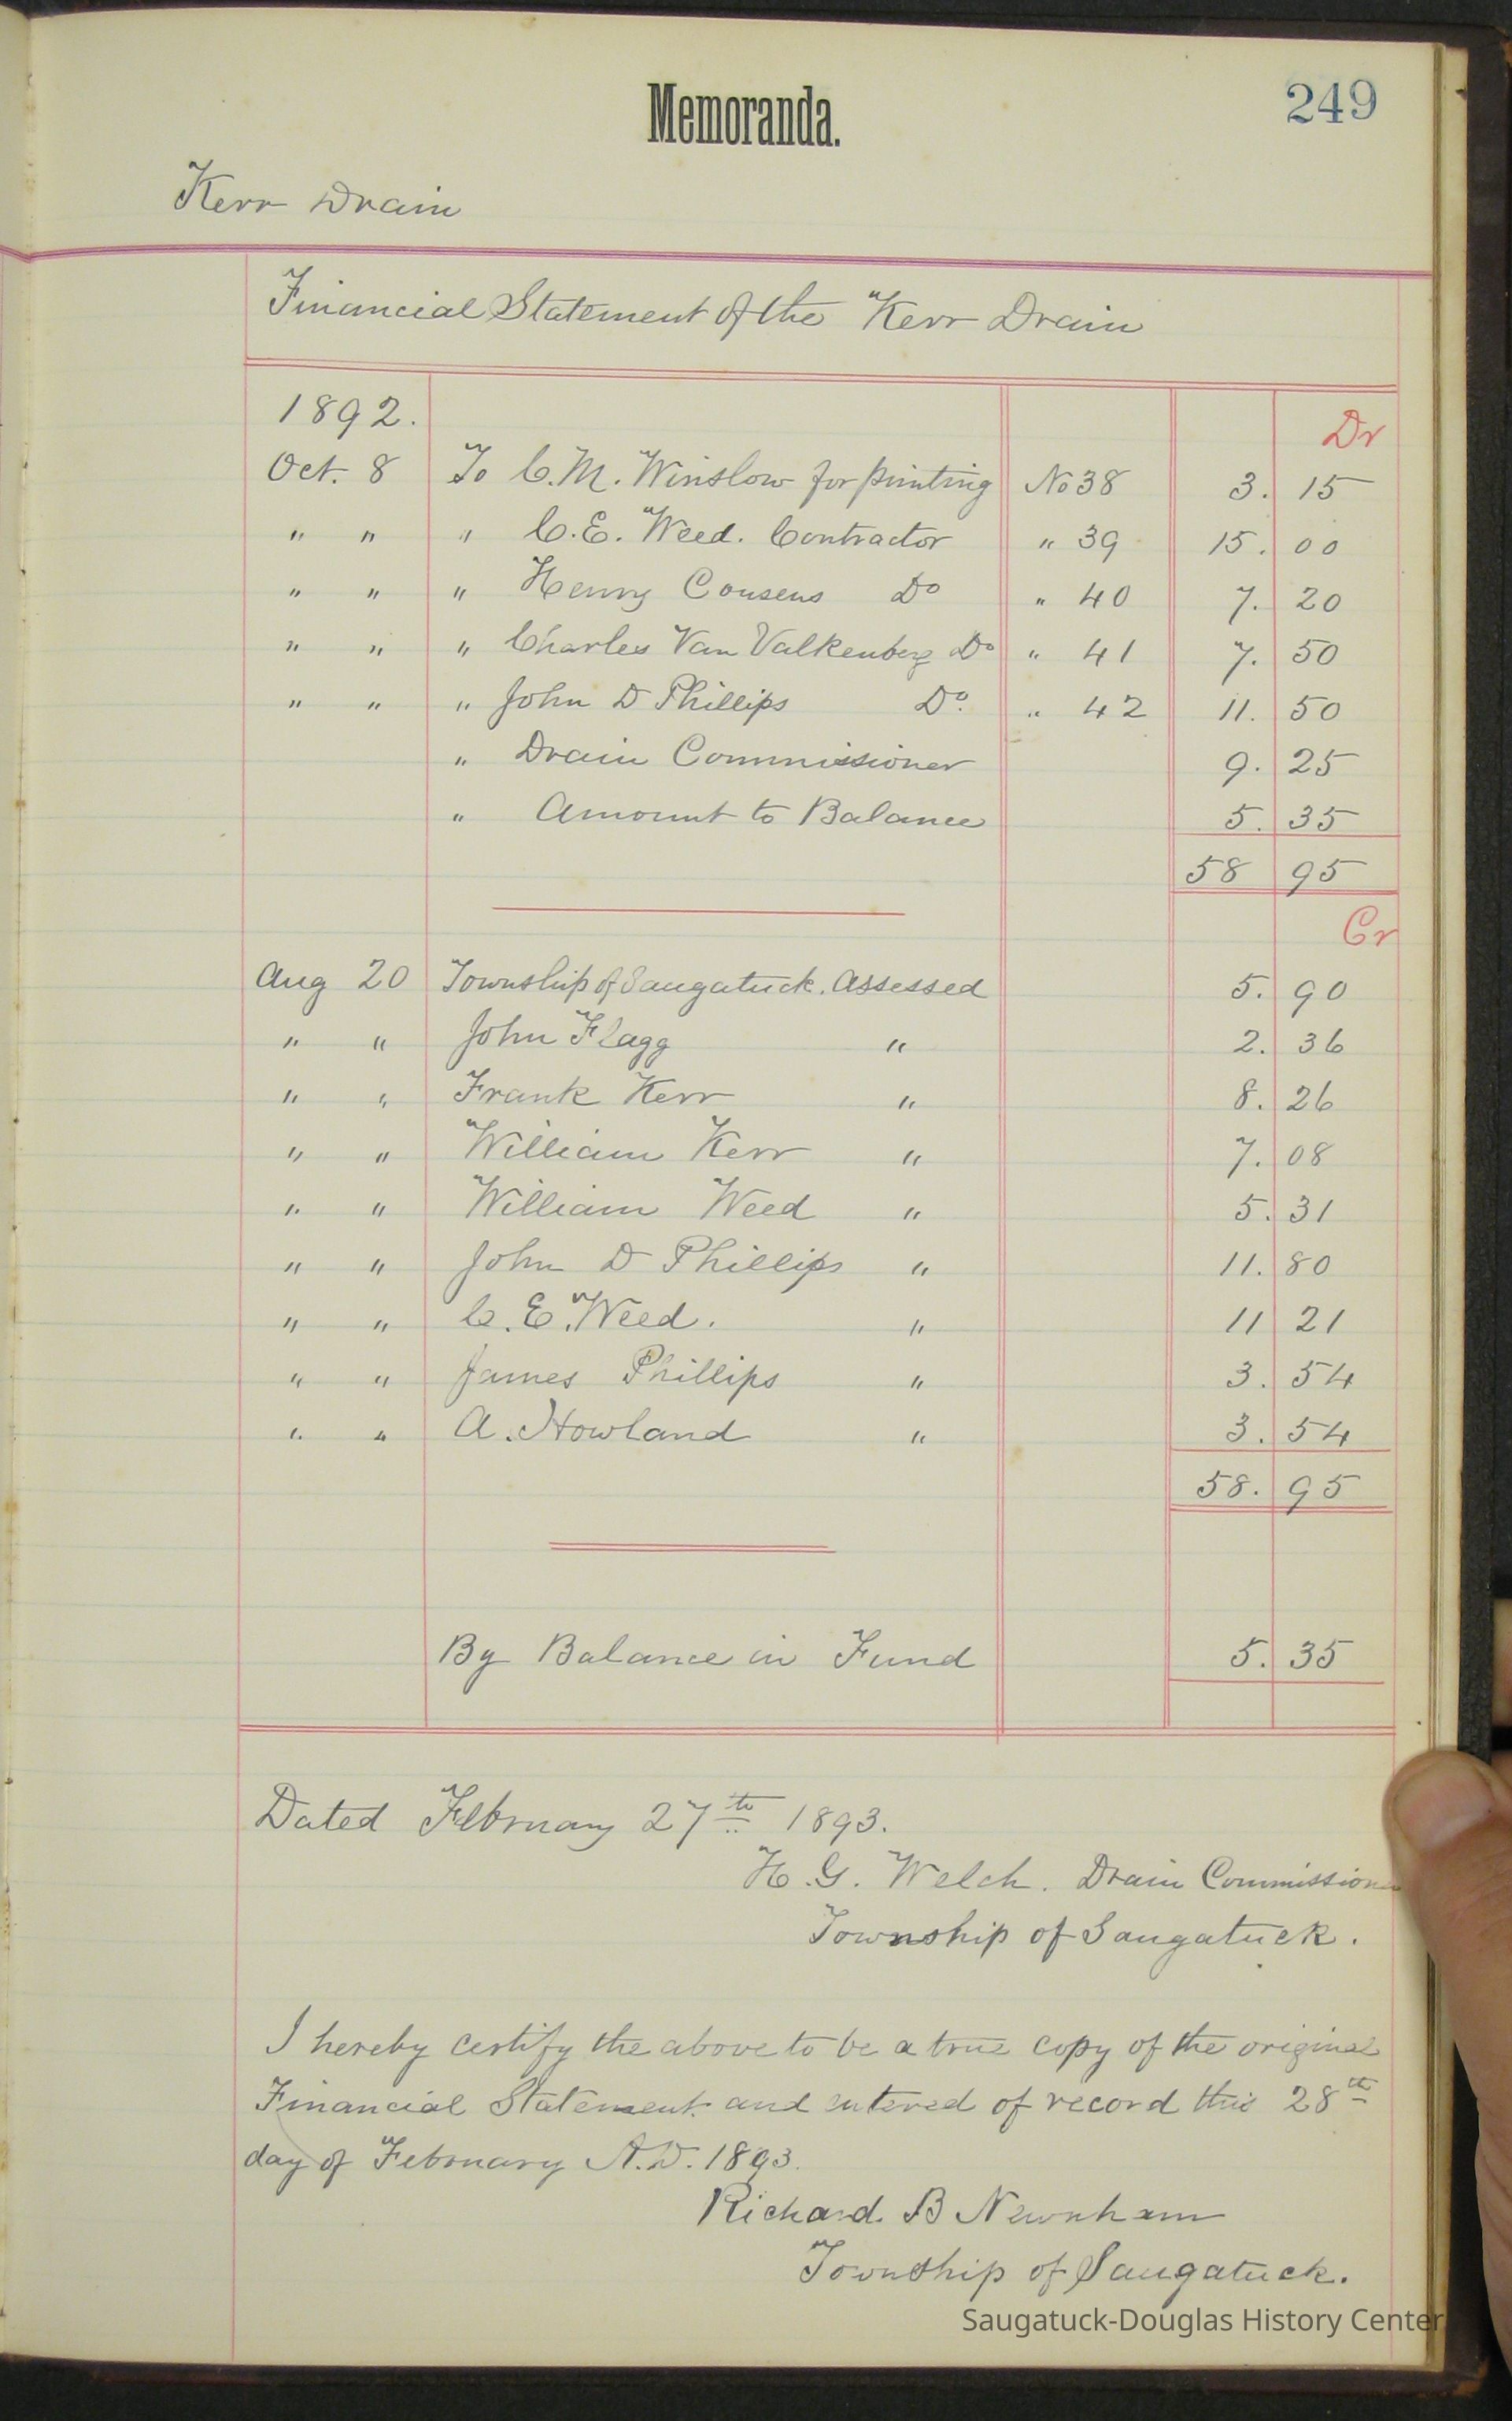 Memoranda.
249
Kerr Drain
Financial Statement of the Kerr Drain
1892.
Dr
Oct. 8 To C.M. Winslow for printing No 38 3. 15
" " " C.E. Weed. Contractor " 39 15. 00
" " " Henry Cousens Do " 40 7. 20
" " " Charles Van Valkenberg Do " 41 7. 50
" " " John D Phillips Do. " 42 11. 50
" Drain Commissioner 9. 25
" Amount to Balance 5. 35
58 95
Cr
Aug 20 Township of Saugatuck. Assessed 5. 90
" " John Flagg " 2. 36
" " Frank Kerr " 8. 26
" " William Kerr " 7. 08
" " William Weed " 5. 31
" " John D Phillips " 11. 80
" " C.E. Weed. " 11 21
" " James Phillips " 3. 54
" " A. Howland " 3. 54
58. 95
By Balance in Fund 5. 35
Dated February 27th 1893.
H.G. Welch. Drain Commissioner
Township of Saugatuck.
I hereby certify the above to be a true copy of the original
Financial Statement and entered of record this 28th
day of February A.D. 1893.
Richard. B Newnham
Township of Saugatuck.
Saugatuck-Douglas History Center